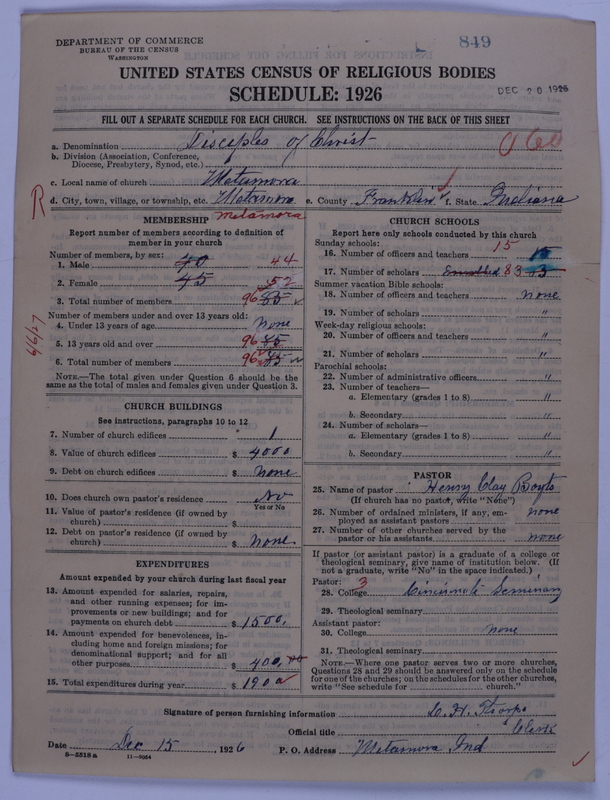 849
DEPARTMENT OF COMMERCE
BUREAU OF THE CENSUS
WASHINGTON
UNITED STATES CENSUS OF RELIGIOUS BODIES
SCHEDULE: 1926
DEC 20 1926
FILL OUT A SEPARATE SCHEDULE FOR EACH CHURCH. SEE INSTRUCTIONS ON THE BACK OF THIS SHEET
a. Denomination Disciples of Christ
b. Division (Association, Conference,
Diocese, Presbytery, Synod, etc.)
c. Local name of church Metamora
d. City, town, village, or township, etc. Metamora e. County Franklin f. State Indiana
Metamora
R
4/6/27
MEMBERSHIP
Report number of members according to definition of
member in your church
Number of members, by sex:
1. Male 40 44
2. Female 45 52
3. Total number of members 96 85
Number of members under and over 13 years old:
4. Under 13 years of age none
5. 13 years old and over 96
6. Total number of members 96
NOTE.—The total given under Question 6 should be
the same as the total of males and females given under Question 3.
CHURCH BUILDINGS
See instructions, paragraphs 10 to 12
7. Number of church edifices 1
8. Value of church edifices $ 4000
9. Debt on church edifices $ none
10. Does church own pastor's residence No
Yes or No
11. Value of pastor's residence (if owned by
church) $
12. Debt on pastor's residence (if owned by
church) $ none
EXPENDITURES
Amount expended by your church during last fiscal year
13. Amount expended for salaries, repairs,
and other running expenses; for im-
provements or new buildings; and for
payments on church debt $ 1500.
14. Amount expended for benevolences, in-
cluding home and foreign missions; for
denominational support; and for all
other purposes $ 400.00
15. Total expenditures during year $ 1900
CHURCH SCHOOLS
Report here only schools conducted by this church
Sunday schools:
16. Number of officers and teachers 15 15
17. Number of scholars Enrolled 83
Summer vacation Bible schools:
18. Number of officers and teachers none
19. Number of scholars "
Week-day religious schools:
20. Number of officers and teachers "
21. Number of scholars "
Parochial schools:
22. Number of administrative officers "
23. Number of teachers—
a. Elementary (grades 1 to 8) "
b. Secondary "
24. Number of scholars—
a. Elementary (grades 1 to 8) "
b. Secondary "
PASTOR
25. Name of pastor Henry Clay
(If church has no pastor, write "None")
26. Number of ordained ministers, if any, em-
ployed as assistant pastors none
27. Number of other churches served by the
pastor or his assistants none
If pastor (or assistant pastor) is a graduate of a college or
theological seminary, give name of institution below. (If
not a graduate, write "No" in the space indicated.)
Pastor: 3
28. College Cincinnati Seminary
29. Theological seminary
Assistant pastor:
30. College none
31. Theological seminary
NOTE.—Where one pastor serves two or more churches,
Questions 28 and 29 should be answered only on the schedule
for one of the churches; on the schedules for the other churches,
write "See schedule for church."
Signature of person furnishing information C. H. Thorpe
Official title Clerk
Date Dec 15, 1926 P. O. Address Metamora, Ind
8—5518 a 11—9054